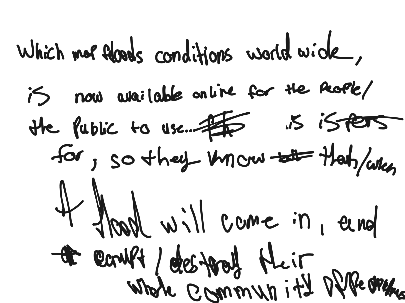 Which map floods conditions world wide,
is now available online for the people/
the public to use... is
for, so they know that/when
A flood will come in, and
erupt/destroy their
whole community